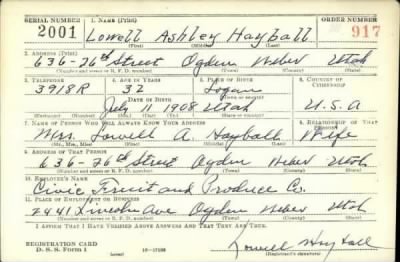 SERIAL NUMBER 1. NAME (Print) ORDER NUMBER
2001 Lowell Ashley Hayball 917
(First) (Middle) (Last)
2. ADDRESS (Print)
636-26th Street Ogden Weber Utah
(Number and street or R. F. D. number) (Town) (County) (State)
3. TELEPHONE 4. AGE IN YEARS 5. PLACE OF BIRTH 6. COUNTRY OF CITIZENSHIP
3918R 32 Logan
DATE OF BIRTH (Town or county)
July 11 1908 Utah U.S.A
(Mo.) (Day) (Yr.) (State or country)
7. NAME OF PERSON WHO WILL ALWAYS KNOW YOUR ADDRESS 8. RELATIONSHIP OF THAT PERSON
Mrs. Lowell A. Hayball Wife
(Mr., Mrs., Miss) (First) (Middle) (Last)
9. ADDRESS OF THAT PERSON
636-26th Street Ogden Weber Utah
(Number and street or R. F. D. number) (Town) (County) (State)
10. EMPLOYER'S NAME
Civic Fruit and Produce Co.
11. PLACE OF EMPLOYMENT OR BUSINESS
2441 Lincoln Ave Ogden Weber Utah
(Number and street or R. F. D. number) (Town) (County) (State)
I AFFIRM THAT I HAVE VERIFIED ABOVE ANSWERS AND THAT THEY ARE TRUE.
REGISTRATION CARD
D. S. S. Form 1 Lowell Hayball
(Registrant's signature)